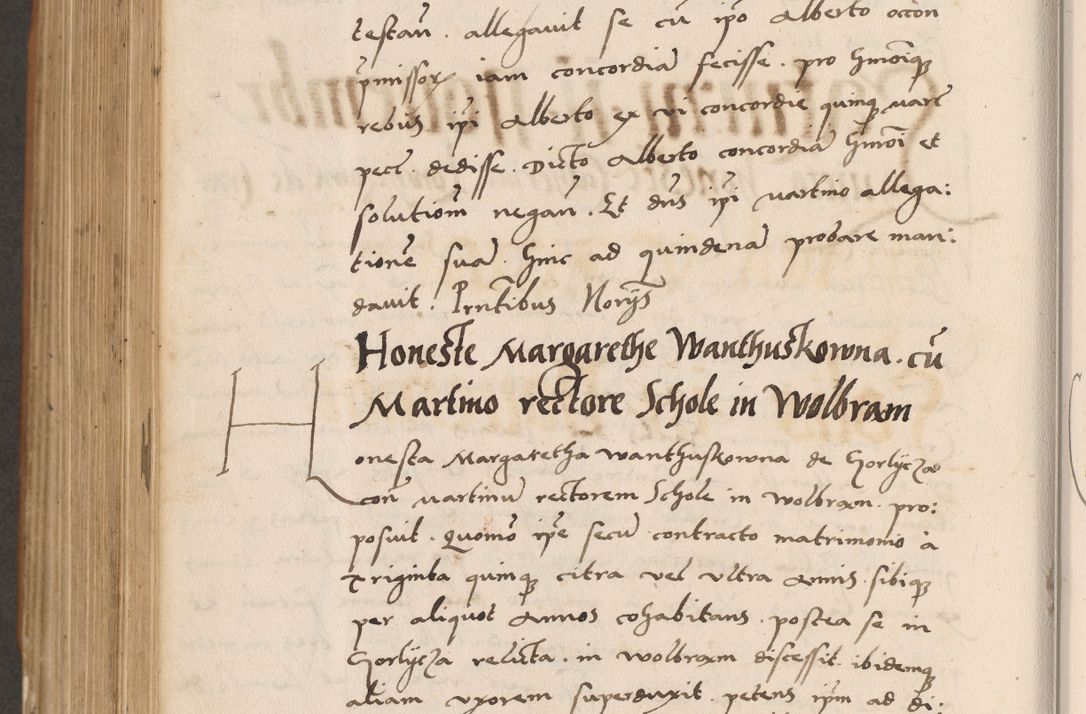 testan̄. allegavit se cū ip̄o Alberto occōn
p̄missoꝝ iam concordiā fecisse. pro hmōiqꝫ
rebus ip̄i Alberto ex vi concordie quinqꝫ marc̄
pecc̄. dedisse. Dicto Alberto concordiā hmōi et
solutionē negan̄. Et dn̄s ip̄i Martino allega:
tionē suā. hinc ad quindenā probare man:
davit. Prn̄tibus Norijs
Honeste Margarethe Wanthuskowna. cū
Martino rectore Schole in Wolbram
Honesta Margaretha Wanthuskowna de Gorlycza
con̄ Martinū rectorem Schole in Wolbram. pro:
posuit. Quomō ip̄e secū contracto matrimonio à
triginta quinqꝫ citra vel vltra annis. sibiqꝫ
per aliquot annos cohabitans. postea se in
Gorlycza relicta. in Wolbram discessit. ibidemqꝫ
aliam vxorem superduxit. petens ip̄m ad di: